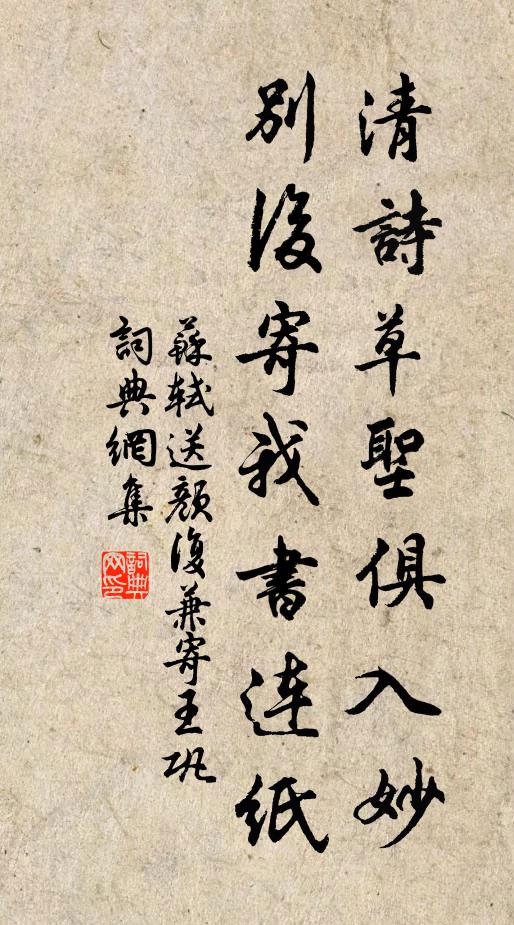 清詩草聖俱入妙
別後寄我書連紙
蘇軾送顏復兼寄王巩
詞典網集
詞典
网印